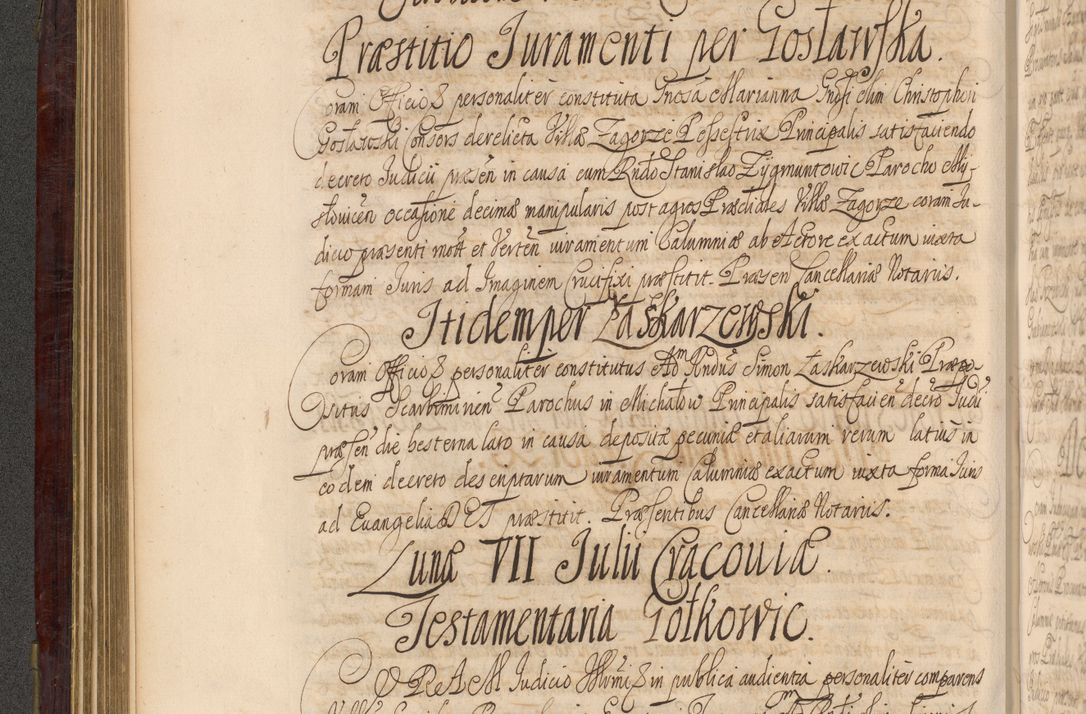 Præstitio Juramenti per Gosławska.
Coram Officio S personaliter constituta Gnosa Marianna Gnosi olim Christophori
Gosławski Consors derelicta Villæ Zagorze Possessrix Principalis satisfaciendo
decreto Judicii præsen in causa cum Rndo Stanislao Zygmuntowic Parocho My-
słowicen occasione decimæ manipularis post agros Prædiales Villæ Zagorze coram Ju-
dicio præsenti mott et Verten iuramentum Calumniæ ab Actore exactum iuxta
formam Juris ad Imaginem Crucifixi præstitit. Præsen Cancellariæ Notariis.
Itidem per Łaskarzewski.
Coram Officio S personaliter constitutus Adm Rndus Simon Łaskarzewski Præpo-
situs Scarbimirien Parochus in Michałow Principalis satisfacien decro Judi
præsen die hesterna lato in causa depositæ pecuniæ et aliarum rerum latius in
eodem decreto descriptarum iuramentum Calumniæ exactum iuxta forma Juris
ad Evangelia DEI præstitit. Præsentibus Cancellariæ Notariis.
Lunæ VII Julii Cracoviæ.
Testamentaria Gołkowic.
CORAM Judicio Illrmi S in publica audientia personaliter comparens